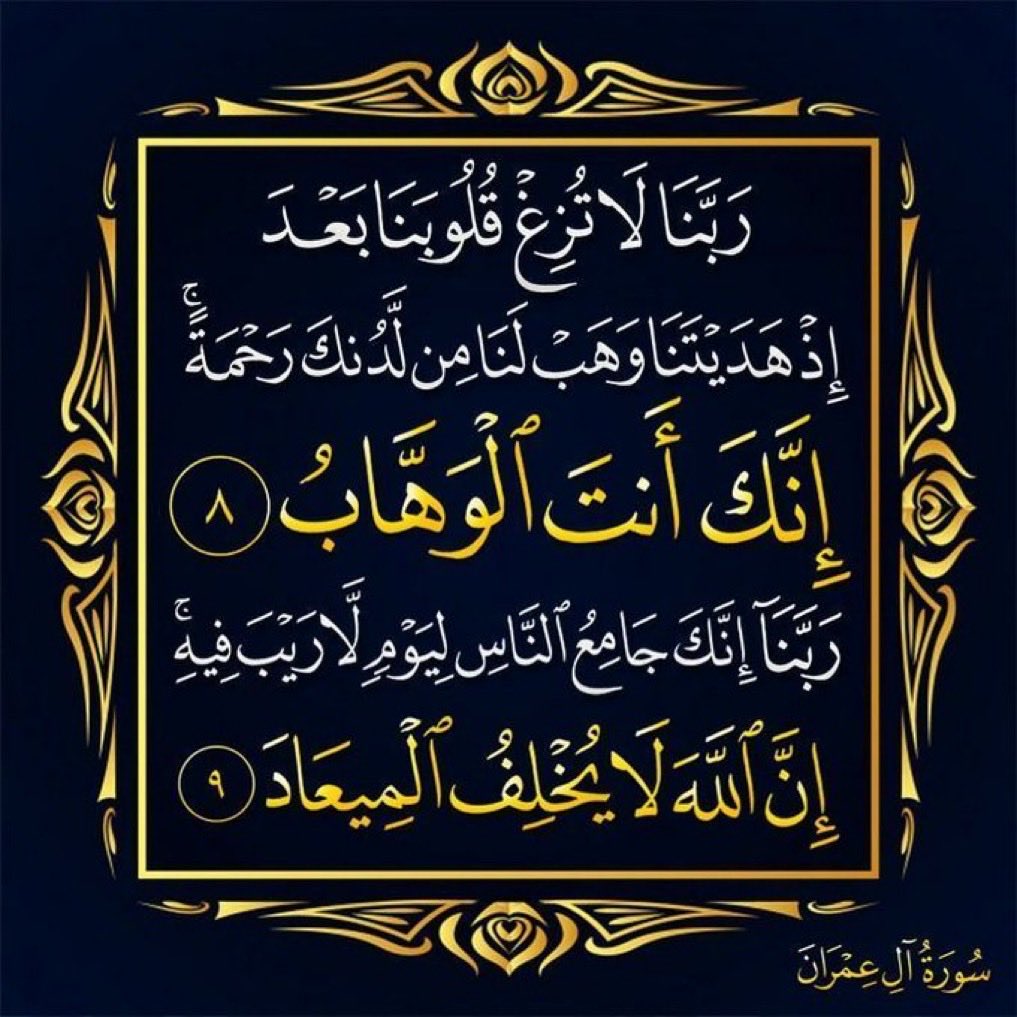 رَبَّنَا لَا تُزِغْ قُلُوبَنَا بَعْدَ
إِذْ هَدَيْتَنَا وَهَبْ لَنَا مِن لَّدُنكَ رَحْمَةًۚ
إِنَّكَ أَنتَ ٱلْوَهَّابُ ٨
رَبَّنَآ إِنَّكَ جَامِعُ ٱلنَّاسِ لِيَوْمٍ لَّا رَيْبَ فِيهِۚ
إِنَّ ٱللَّهَ لَا يُخْلِفُ ٱلْمِيعَادَ ٩
سُورَةُ آلِ عِمْرَانَ